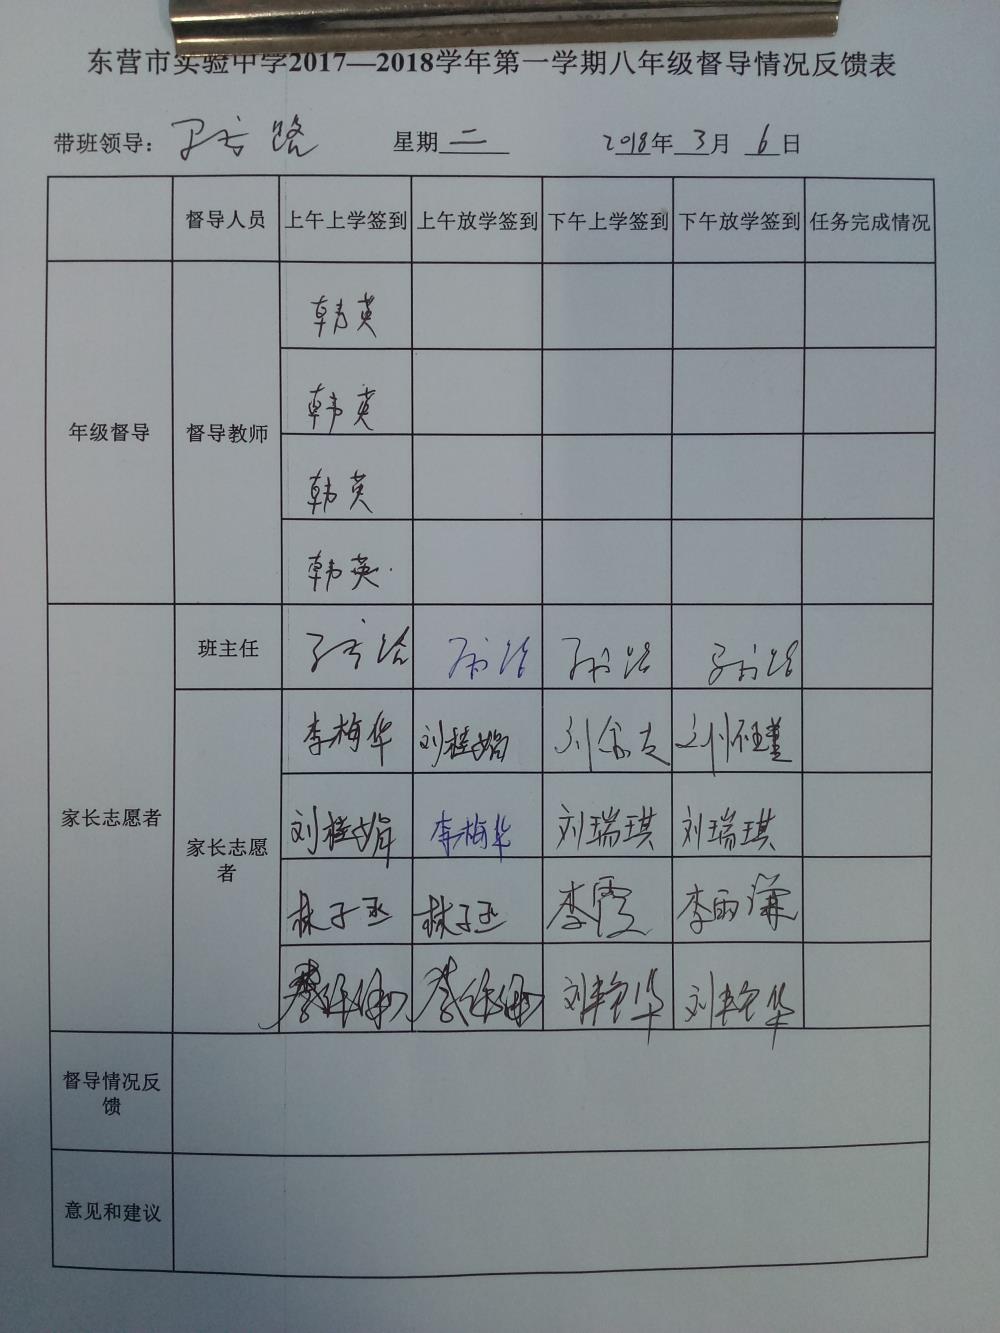 东营市实验中学2017—2018学年第一学期八年级督导情况反馈表
带班领导： 星期二 2018年3月6日
督导人员 上午上学签到 上午放学签到 下午上学签到 下午放学签到 任务完成情况
年级督导 督导教师
韩英
韩英
韩英
韩英
班主任
家长志愿者
家长志愿者
李梅华 刘桂娟
刘桂娟 李梅华 刘瑞琪 刘瑞琪
林子丞 林子丞 李霞 李雨谦
刘艳华 刘艳华
督导情况反馈
意见和建议